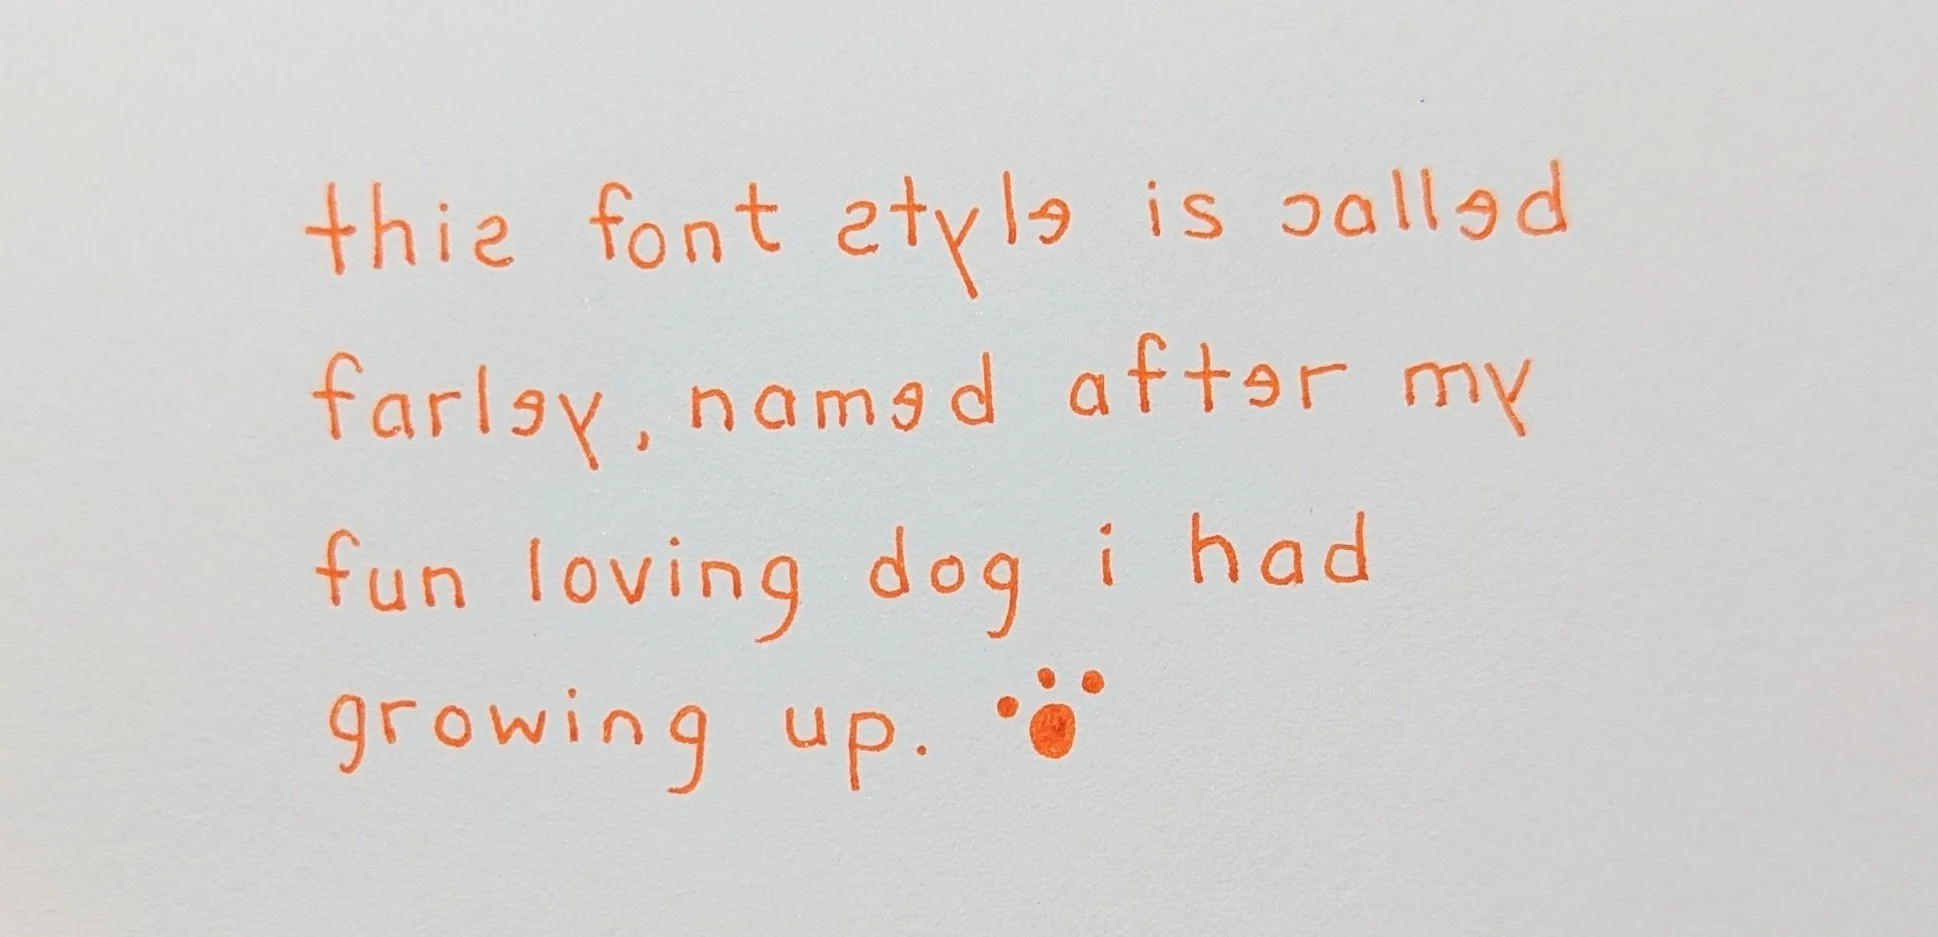 this font style is called
farley, named after my
fun loving dog i had
growing up.